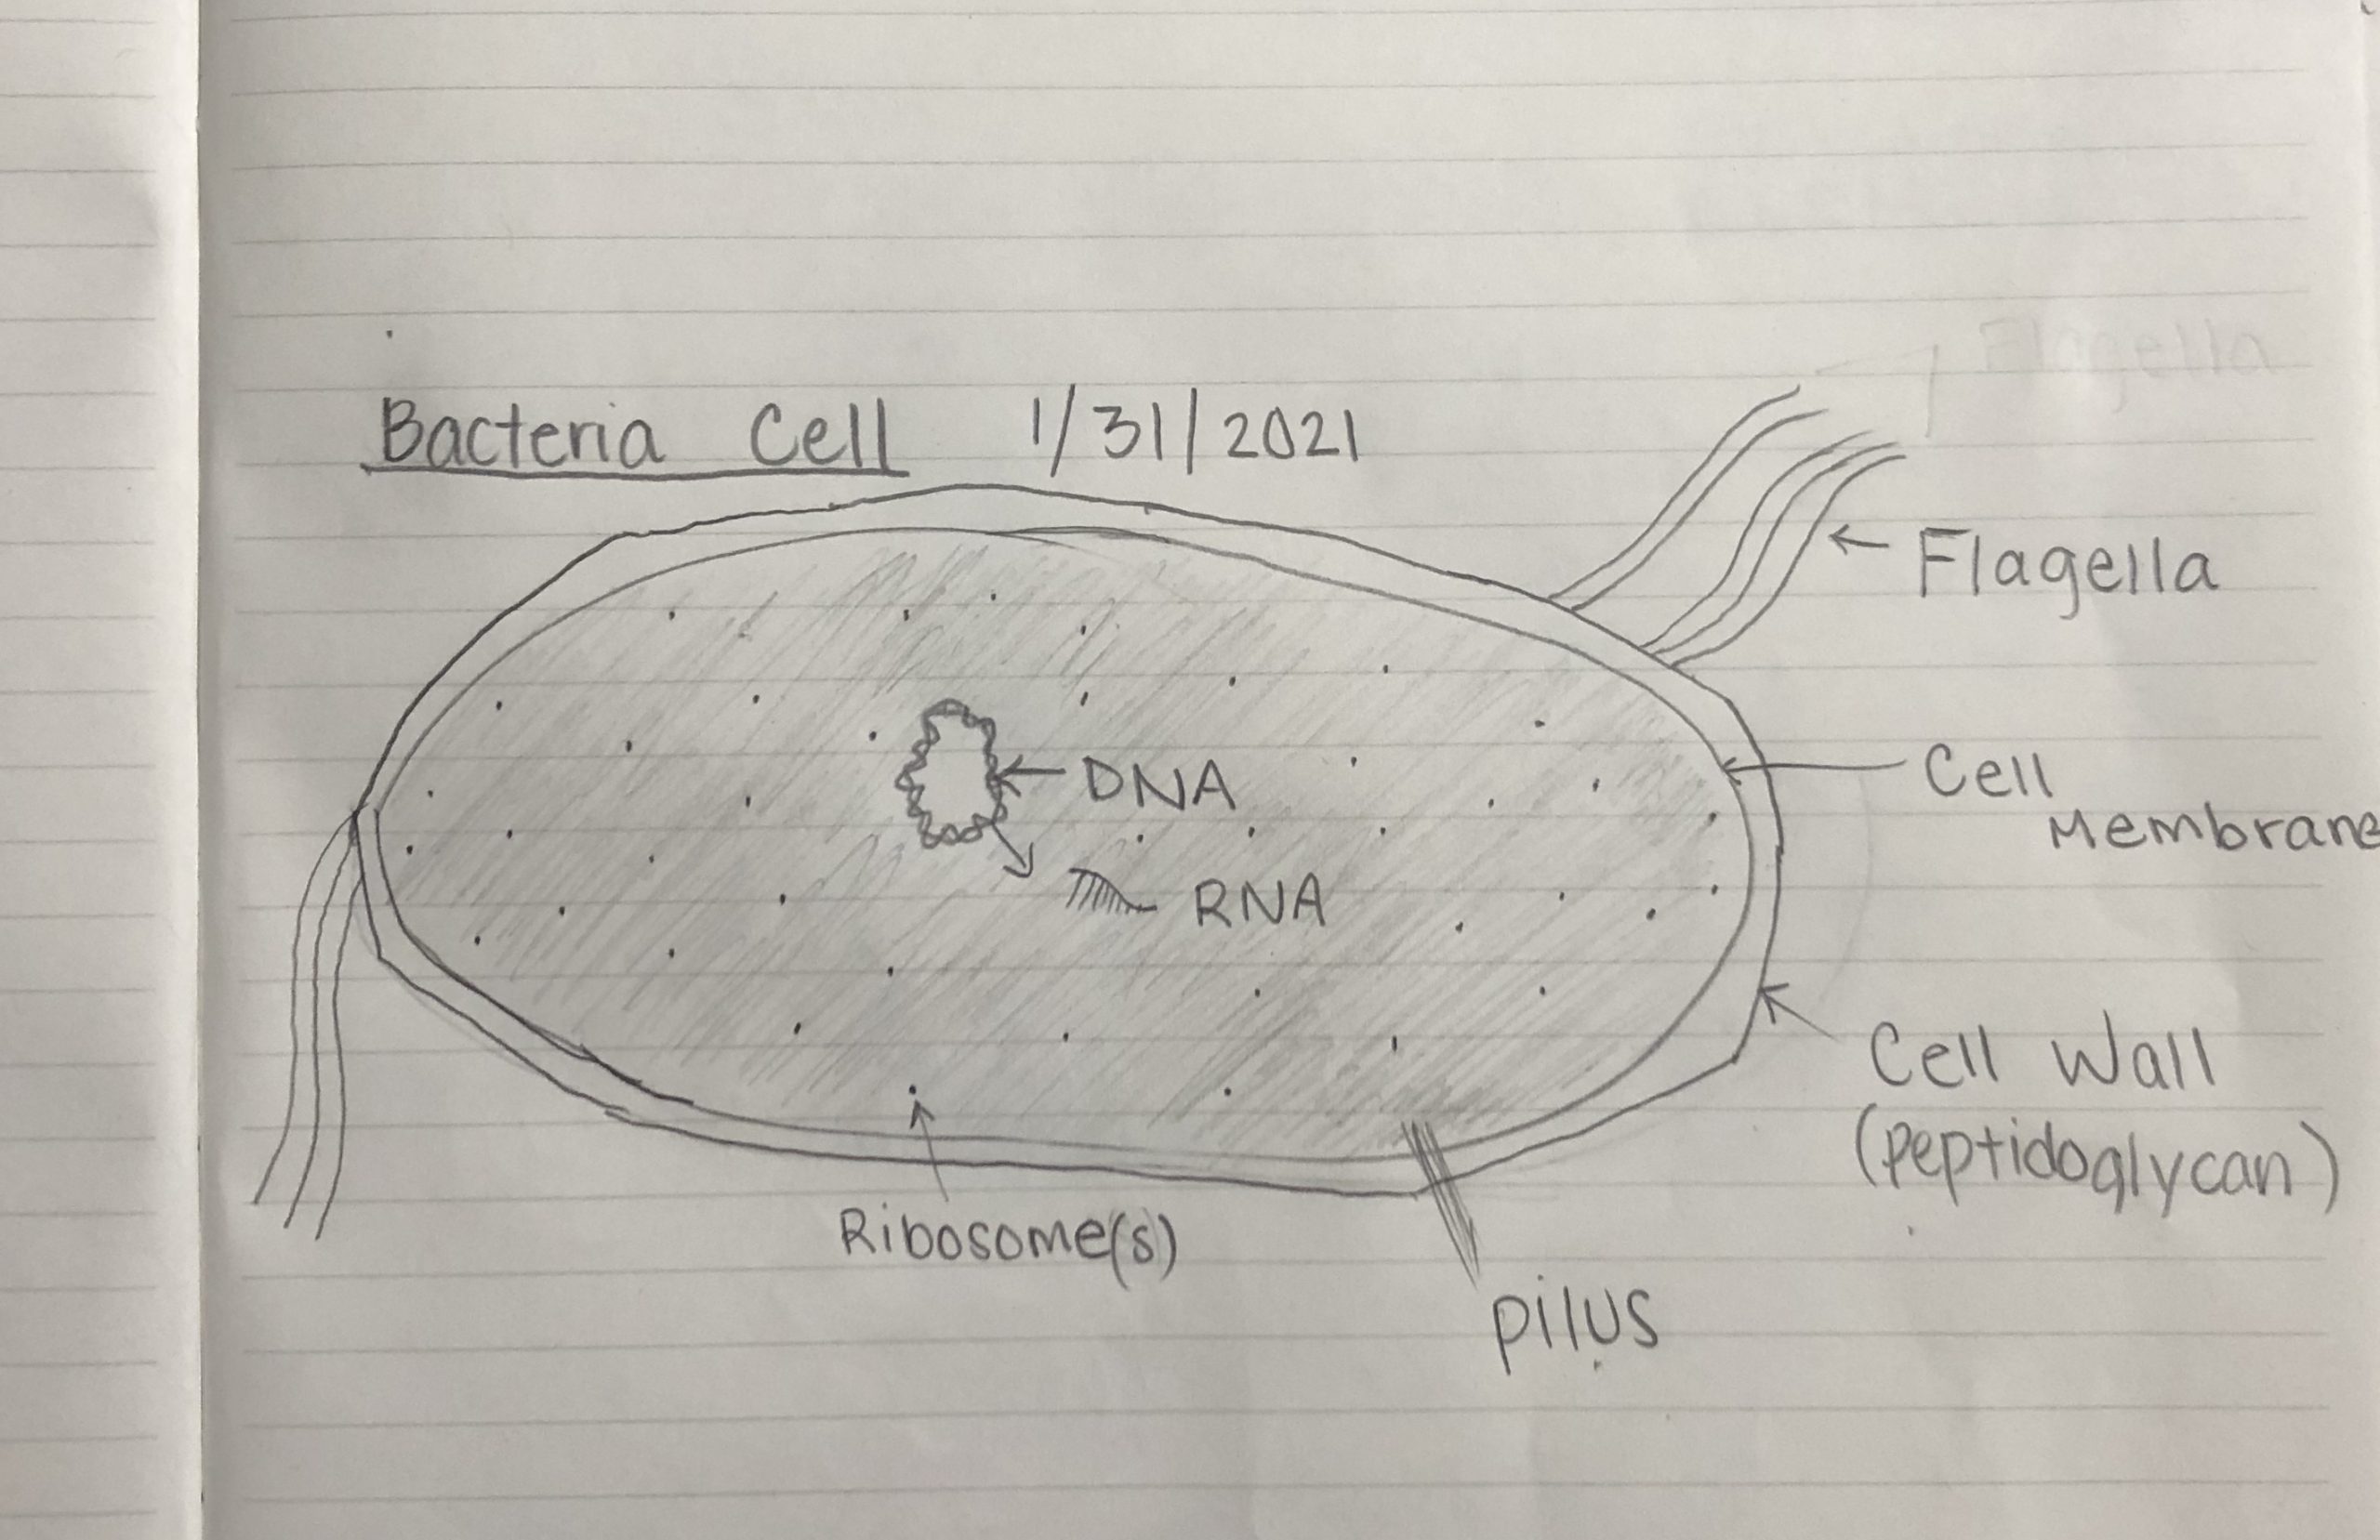 Flagella
Bacteria Cell 1/31/2021
Flagella
Cell
Membrane
DNA
RNA
Cell Wall
(peptidoglycan)
Ribosome(s)
pilus